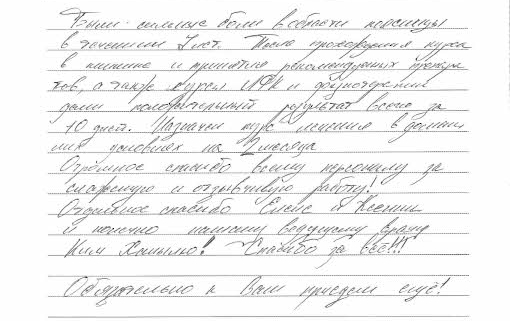 Были сильные боли в области поясницы
в течении 7 лет. После прохождения курса
в клинике и принятия рекомендуемых препара
тов, а также курса ЛФК и физиотерапии
дали положительный результат всего за
10 дней. Назначен курс лечения в домаш
них условиях на 2 месяца
Огромное спасибо всему персоналу за
слаженную и отзывчивую работу!
Отдельное спасибо Елене и Ксении
и конечно нашему ведущему врачу
Ким! Спасибо за всё!!!
Обязательно к Вам приедем ещё!